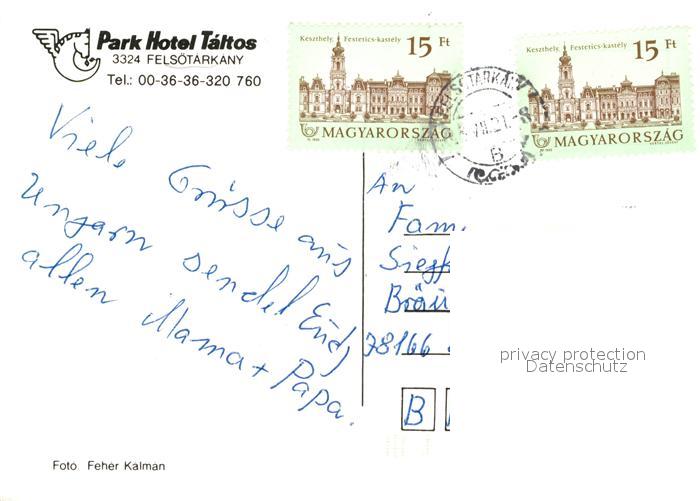 Park Hotel Táltos
3324 FELSŐTARKANY
Tel.: 00-36-36-320 760
Keszthely, Festetics-kastély
15 Ft
MAGYARORSZÁG
Keszthely, Festetics-kastély
15 Ft
MAGYARORSZÁG
FELSŐTÁRKÁNY
VII.21.-8
B
Viele Grüsse aus
Ungarn sendet Euch
allen Mama + Papa.
An
Fam.
Siegf
Bräu
78166
B
privacy protection
Datenschutz
Foto: Fehér Kálmán